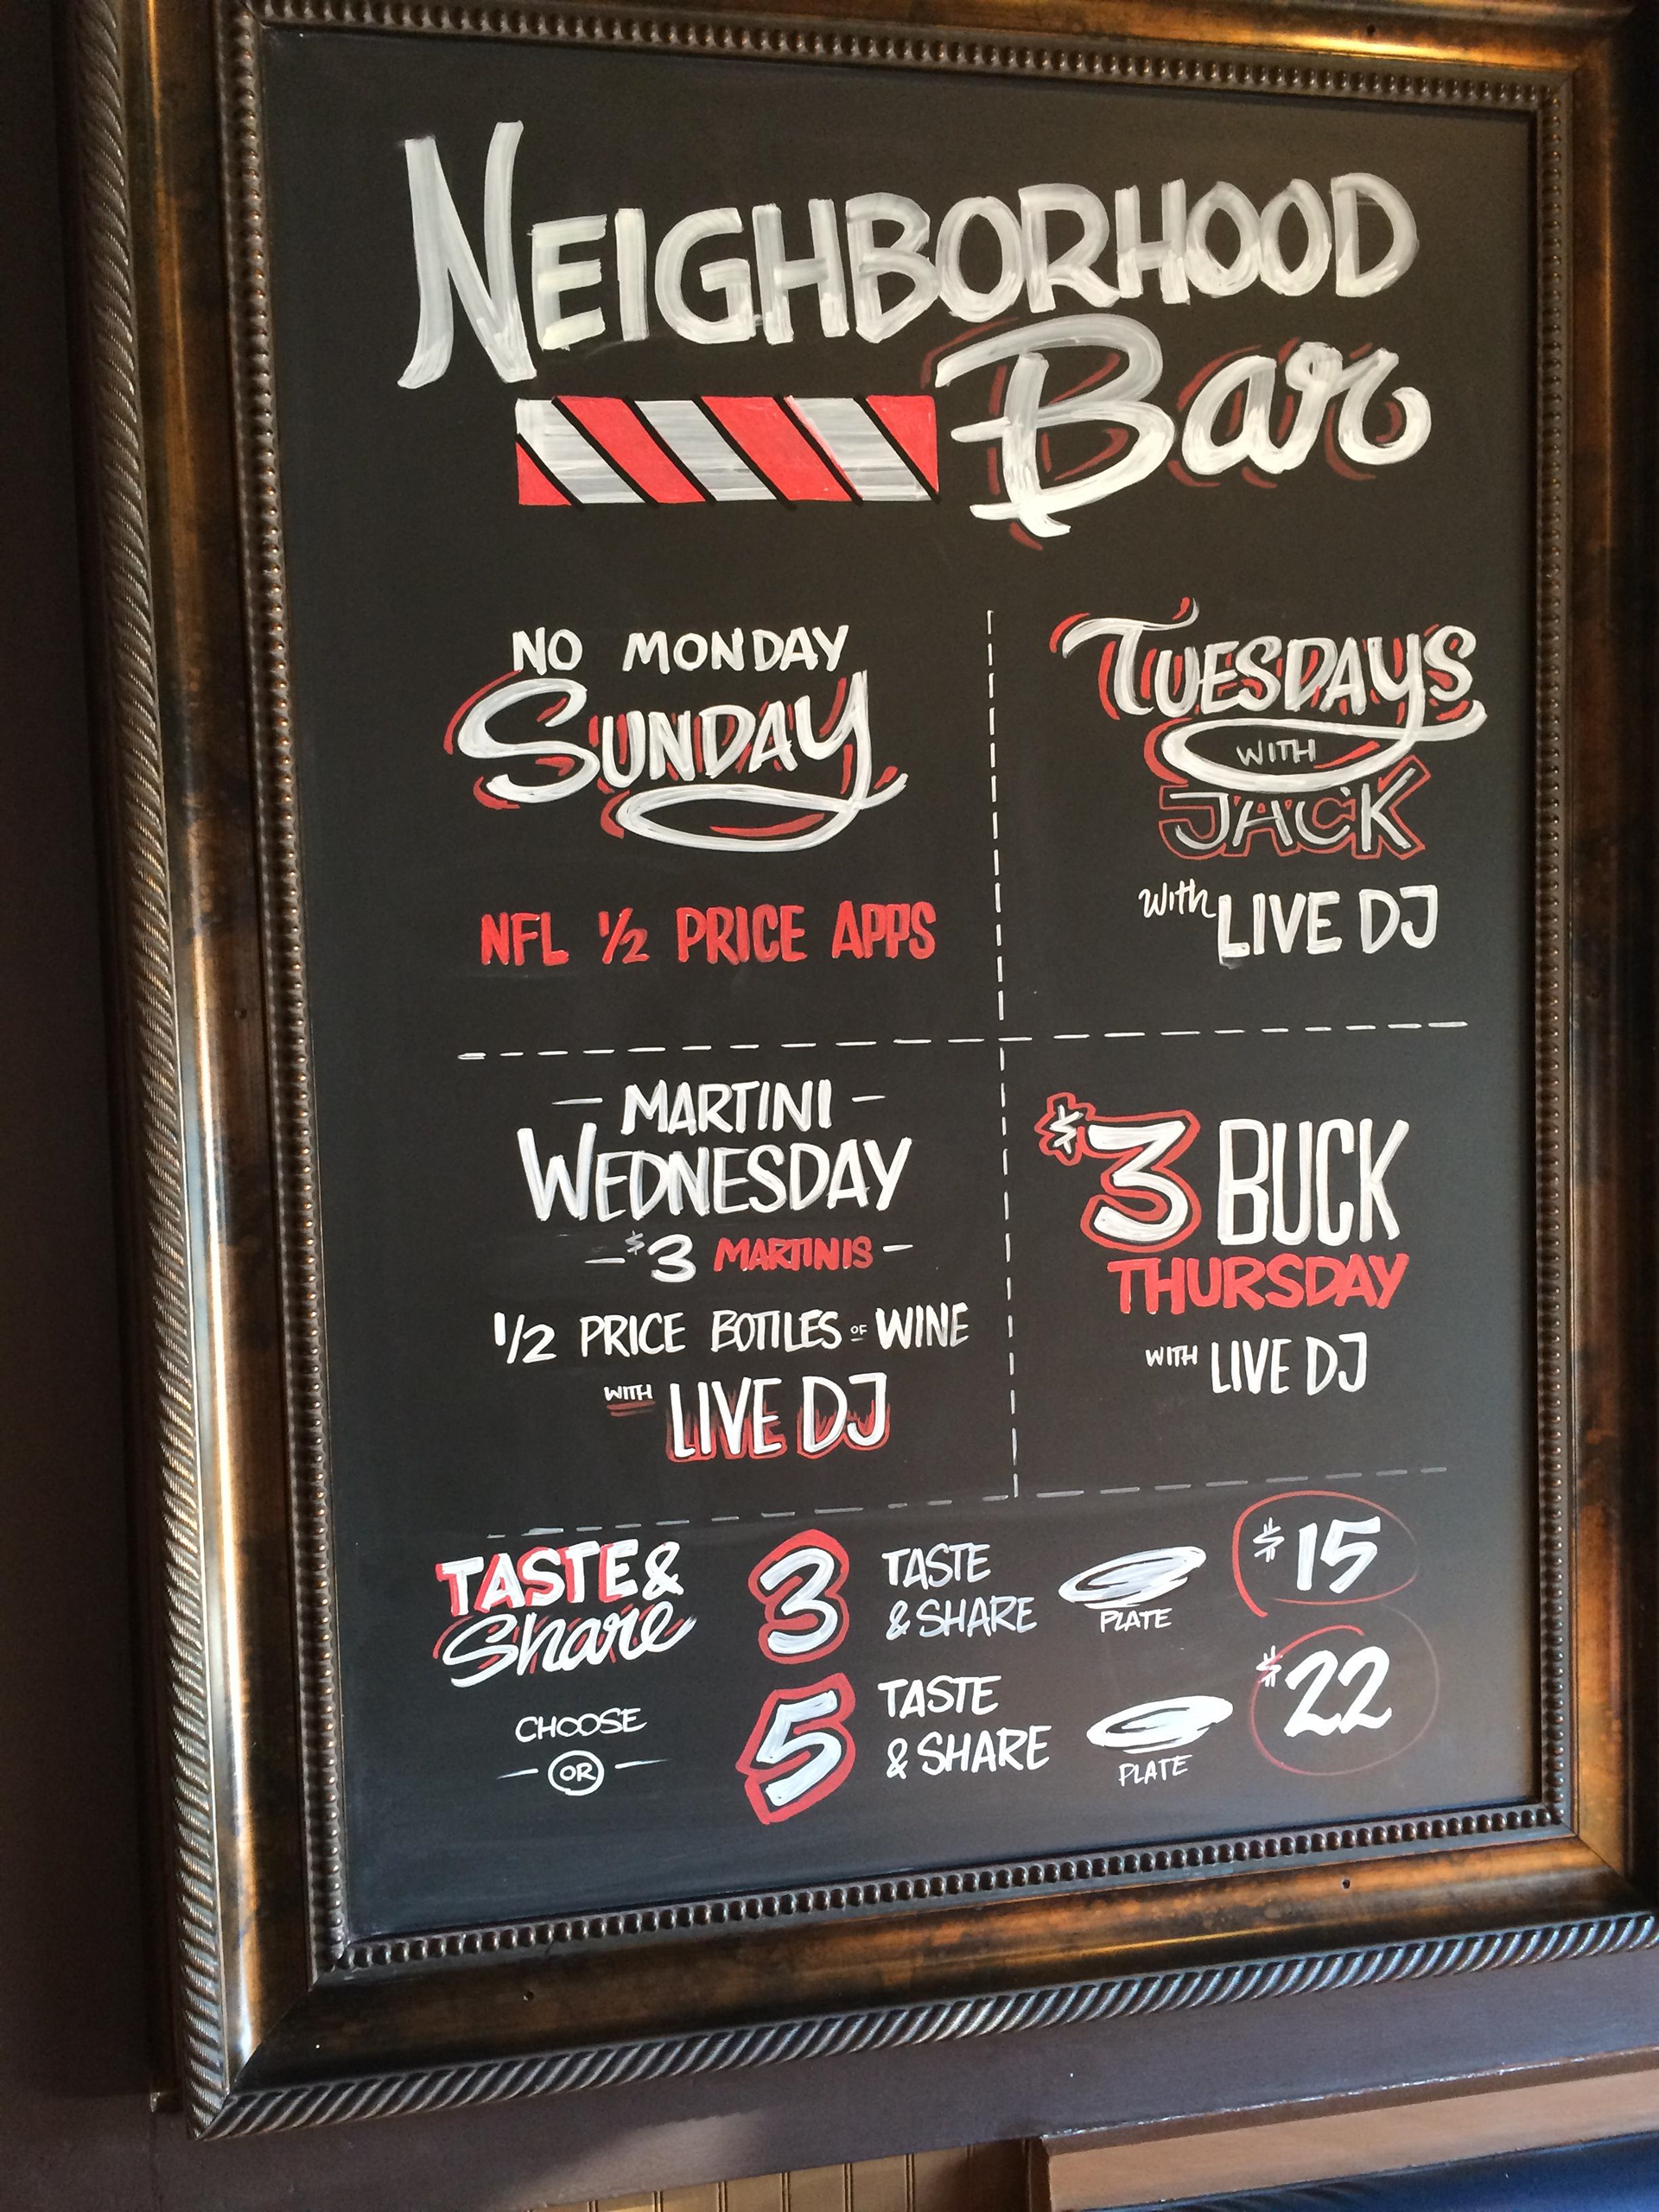 NEIGHBORHOOD
Bar
NO MONDAY
SUNDAY
NFL 1/2 PRICE APPS
TUESDAY'S
WITH
JACK
with LIVE DJ
- MARTINI -
WEDNESDAY
- $3 MARTINIS -
1/2 PRICE BOTTLES OF WINE
WITH LIVE DJ
$3 BUCK
THURSDAY
WITH LIVE DJ
TASTE &
Share
CHOOSE
- OR -
3 TASTE & SHARE PLATE $15
5 TASTE & SHARE PLATE $22